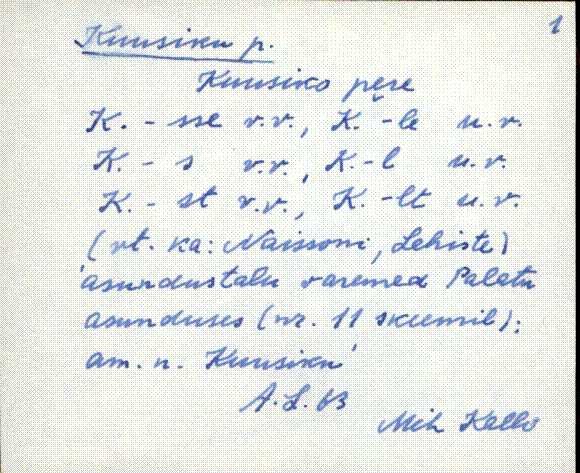 1
Kuusiku p.
Kuusiko pere
K. - sse v.v., K. -le u.v.
K. - s v.v., K.-l u.v.
K. - st v.v., K. -lt u.v.
(vt. ka: Naissoni, Lehiste)
'asundustalu varemed Palatu
asunduses (nr. 11 skeemil);
am. n. Kuusiku'
A.L. 63
Mih Kallo